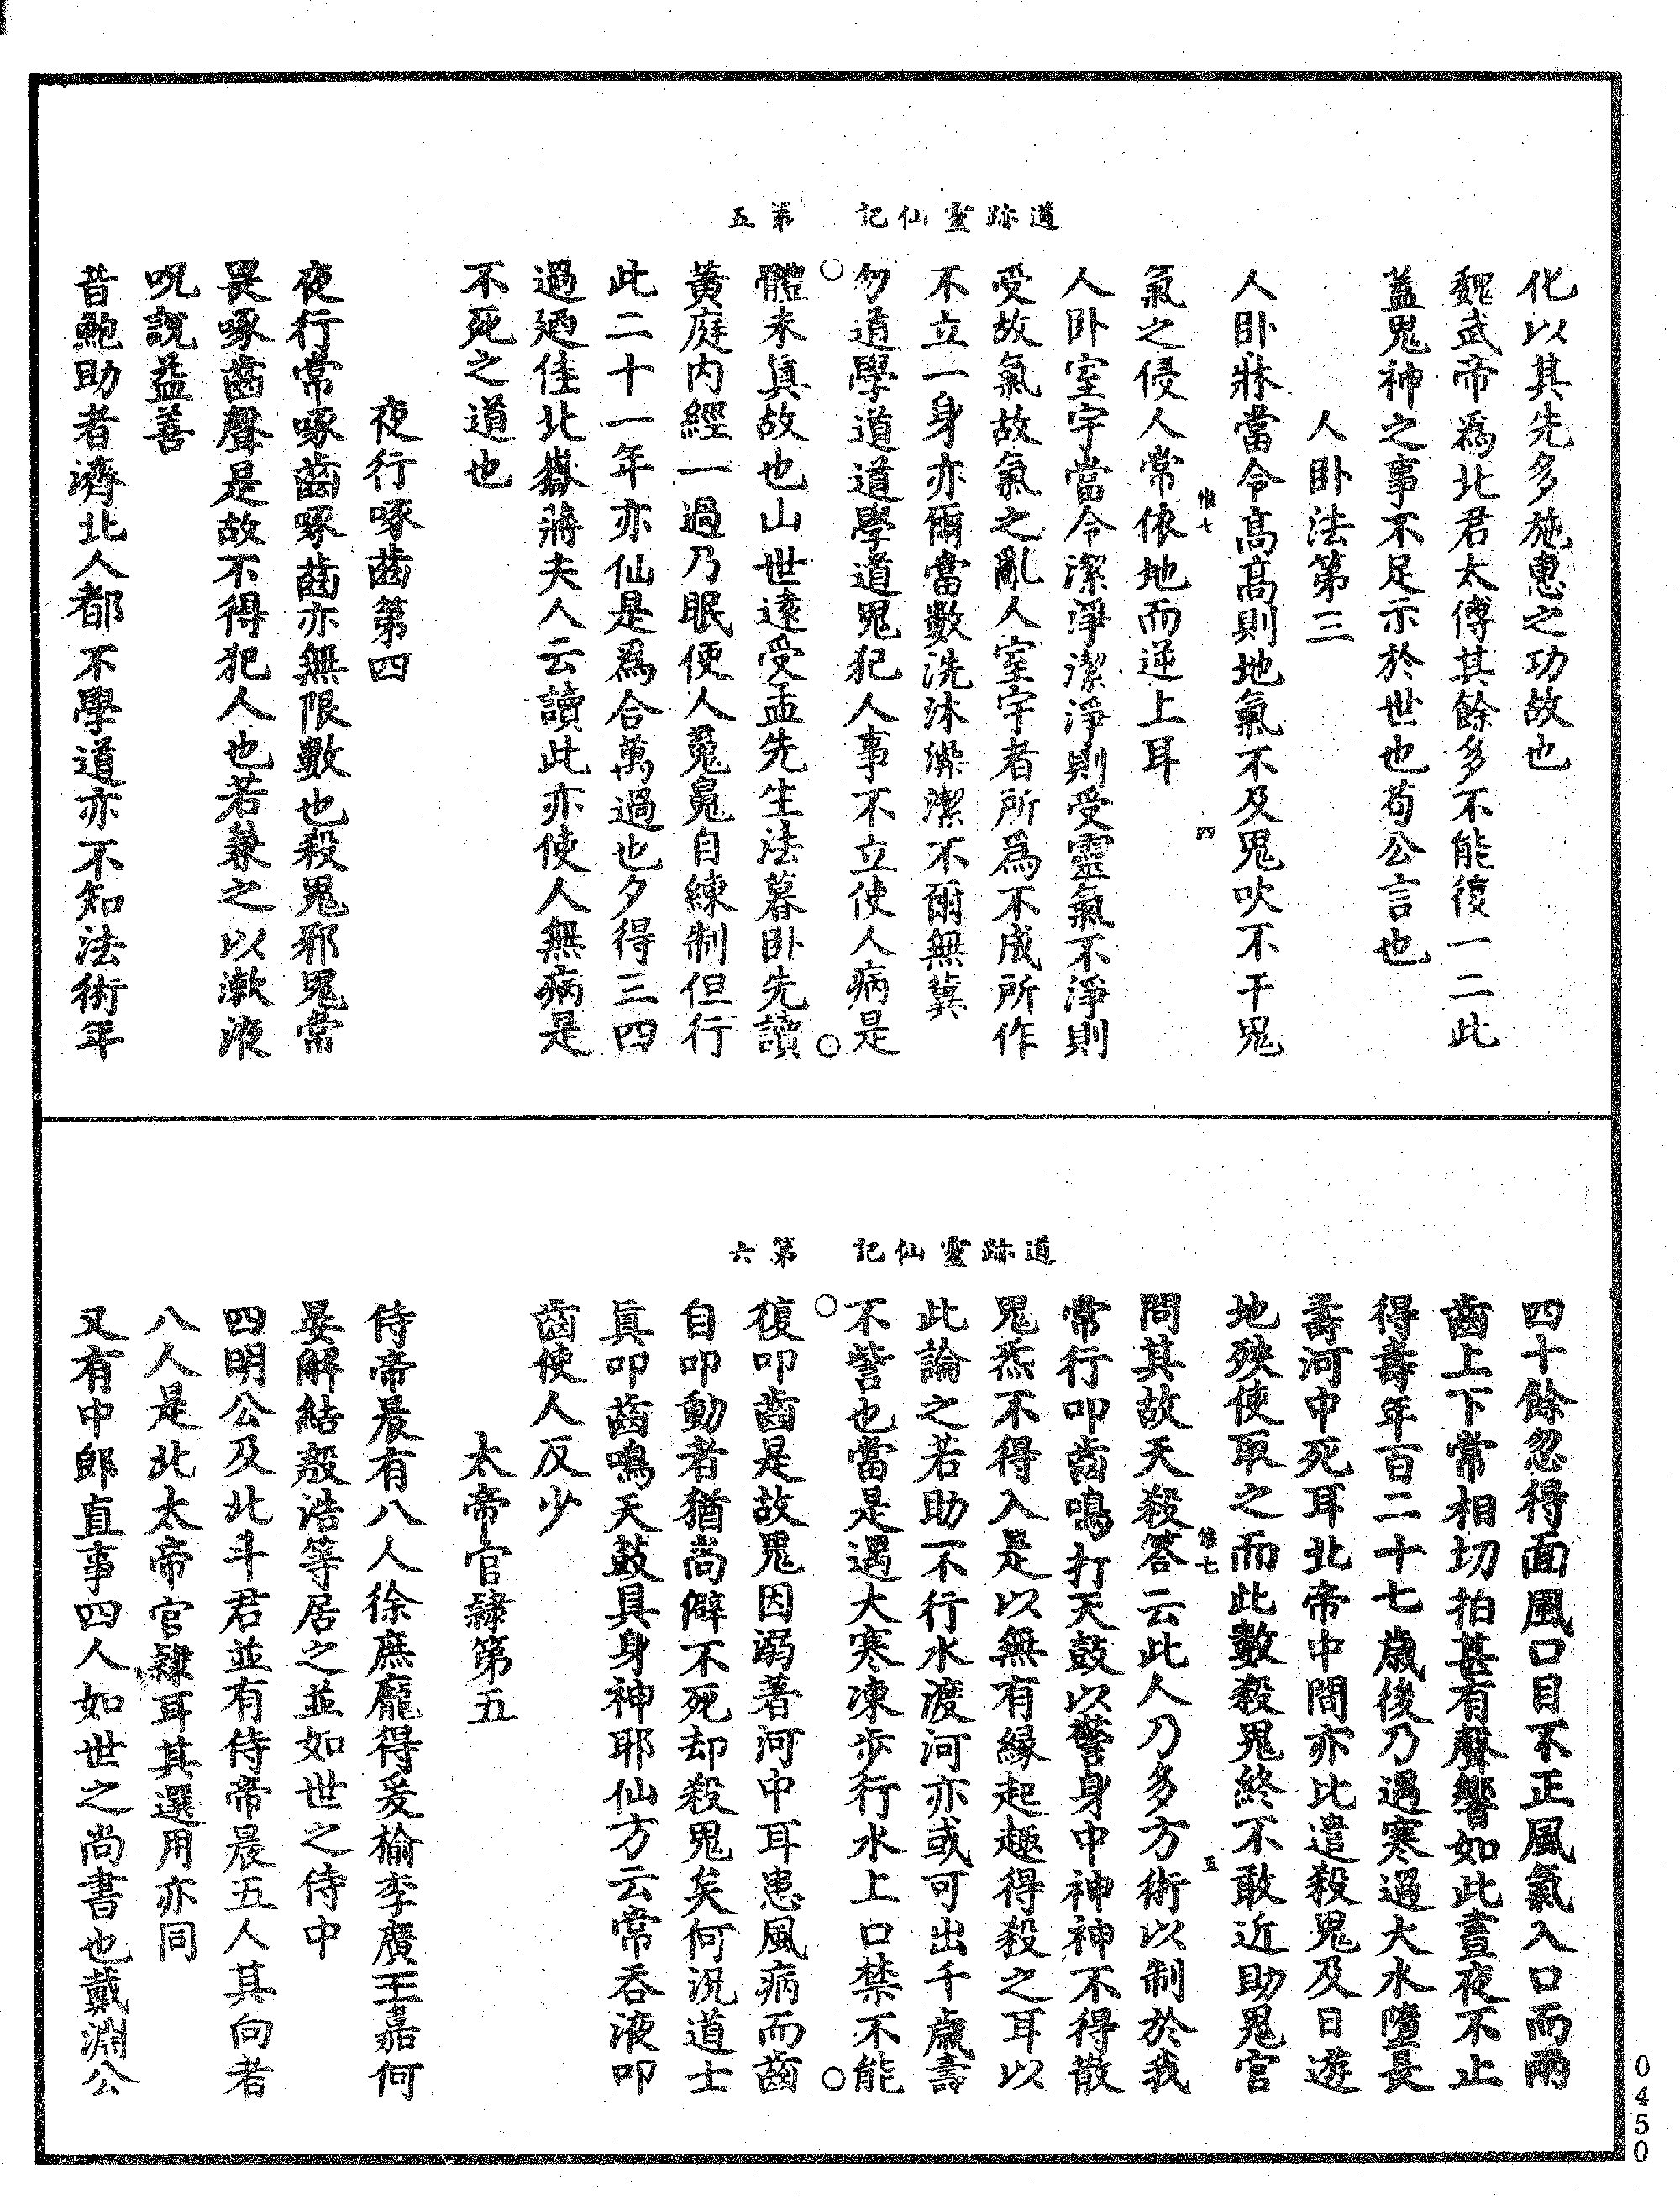 道跡靈仙記　第五
化以其先多施惠之功故也
魏武帝為北君太傅其餘多不能復一二此
蓋鬼神之事不足示於世也荀公言也
人卧法第三
人卧牀當令高高則地氣不及鬼吹不干鬼
氣之侵人常依地而逆上耳
人卧室宇當令潔淨潔淨則受靈氣不淨則
受故氣故氣之亂人室宇者所爲不成所作
不立一身亦爾當數洗沐澡潔不爾無冀
勿道學道道學道鬼犯人事不立使人病是
體未眞故也山世遠受孟先生法暮卧先讀
黃庭內經一過乃眠使人䰟鬼自練制但行
此二十一年亦仙是爲合萬過也夕得三四
過廼佳北嶽蔣夫人云讀此亦使人無病是
不死之道也
夜行啄齒第四
夜行常啄齒啄齒亦無限數也殺鬼邪鬼常
畏啄齒聲是故不得犯人也若兼之以漱液
呪說益善
昔鮑助者濟北人都不學道亦不知法術年
四
道跡靈仙記　第六
四十餘忽得面風口目不正風氣入口而兩
齒上下常相切拍甚有聲響如此晝夜不止
得壽年百二十七歲後乃遇寒過大水墮長
壽河中死耳北帝中間亦比遣殺鬼及日遊
地殃使取之而此數殺鬼終不敢近助鬼官
問其故天殺答云此人乃多方術以制於我
常行叩齒鳴打天鼓以警身中神神不得散
鬼炁不得入是以無有緣起趣得殺之耳以
此論之若助不行水渡河亦或可出千歲壽
不訾也當是遇大寒凍步行水上口禁不能
復叩齒是故鬼因溺著河中耳患風病而齒
自叩動者猶尚僻不死却殺鬼矣何況道士
眞叩齒鳴天鼓具身神耶仙方云常吞液叩
齒使人反少
太帝官隸第五
侍帝晨有八人徐庶龐得爰榆李廣王嘉何
晏解結殷浩等居之並如世之侍中
四明公及北斗君並有侍帝晨五人其向者
八人是北太帝官隸耳其選用亦同
又有中郎直事四人如世之尚書也戴淵公
五
0450